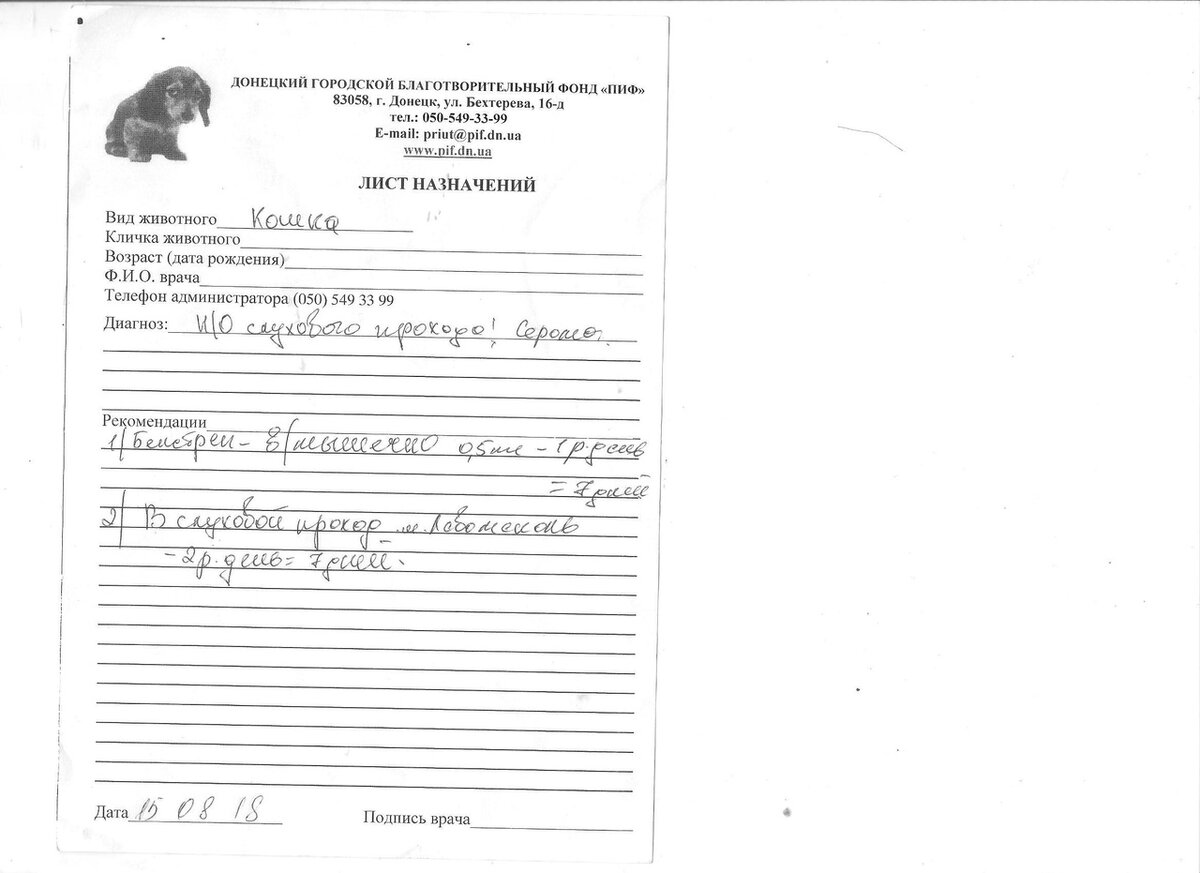 ДОНЕЦКИЙ ГОРОДСКОЙ БЛАГОТВОРИТЕЛЬНЫЙ ФОНД «ПИФ»
83058, г. Донецк, ул. Бехтерева, 16-д
тел.: 050-549-33-99
E-mail: priut@pif.dn.ua
www.pif.dn.ua
ЛИСТ НАЗНАЧЕНИЙ
Вид животного Кошка
Кличка животного
Возраст (дата рождения)
Ф.И.О. врача
Телефон администратора (050) 549 33 99
Диагноз: И/О слухового прохода!
Рекомендации
1/ - в/мышечно 0,5мл - 1 р. день
= 7 дней
2/ В слуховой проход м. Левомеколь
- 2 р. день = 7 дней.
Дата 15 08 18 Подпись врача